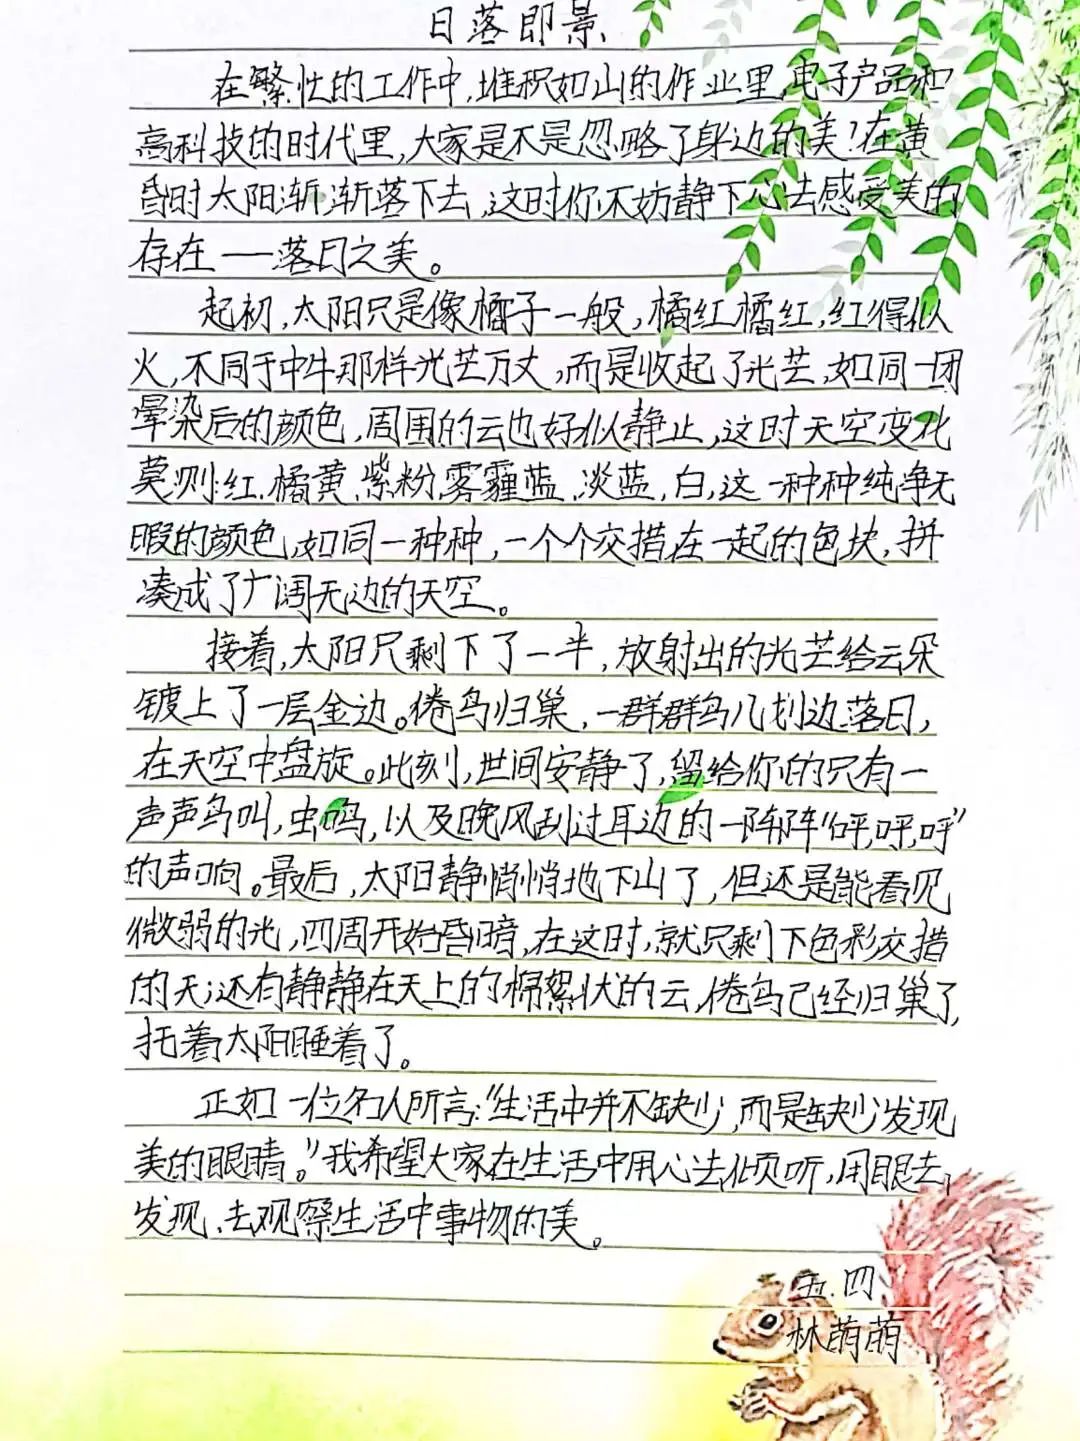 日落即景
在繁忙的工作中,堆积如山的作业里,电子产品和
高科技的时代里,大家是不是忽略了身边的美!在黄
昏时太阳渐渐落下去,这时你不妨静下心去感受美的
存在——落日之美。
起初,太阳只是像橘子一般,橘红橘红,红得似
火,不同于中午那样光芒万丈,而是收起了光芒,如同一团
晕染后的颜色,周围的云也好似静止,这时天空变化
莫测:红、橘黄、紫粉、雾霾蓝、淡蓝、白,这一种种纯净无
暇的颜色,如同一种种,一个个交措在一起的色块,拼
凑成了广阔无边的天空。
接着,太阳只剩下了一半,放射出的光芒给云朵
镀上了一层金边。倦鸟归巢,一群群鸟儿划边落日,
在天空中盘旋。此刻,世间安静了,留给你的只有一
声声鸟叫,虫鸣,以及晚风刮过耳边的一阵阵“呼,呼,呼”
的声响。最后,太阳静悄悄地下山了,但还是能看见
微弱的光,四周开始昏暗,在这时,就只剩下色彩交措
的天;还有静静在天上的棉絮状的云,倦鸟已经归巢了,
托着太阳睡着了。
正如一位名人所言:“生活中并不缺少,而是缺少发现
美的眼睛。”我希望大家在生活中用心去倾听,用眼去
发现、去观察生活中事物的美。
五.四
林萌萌